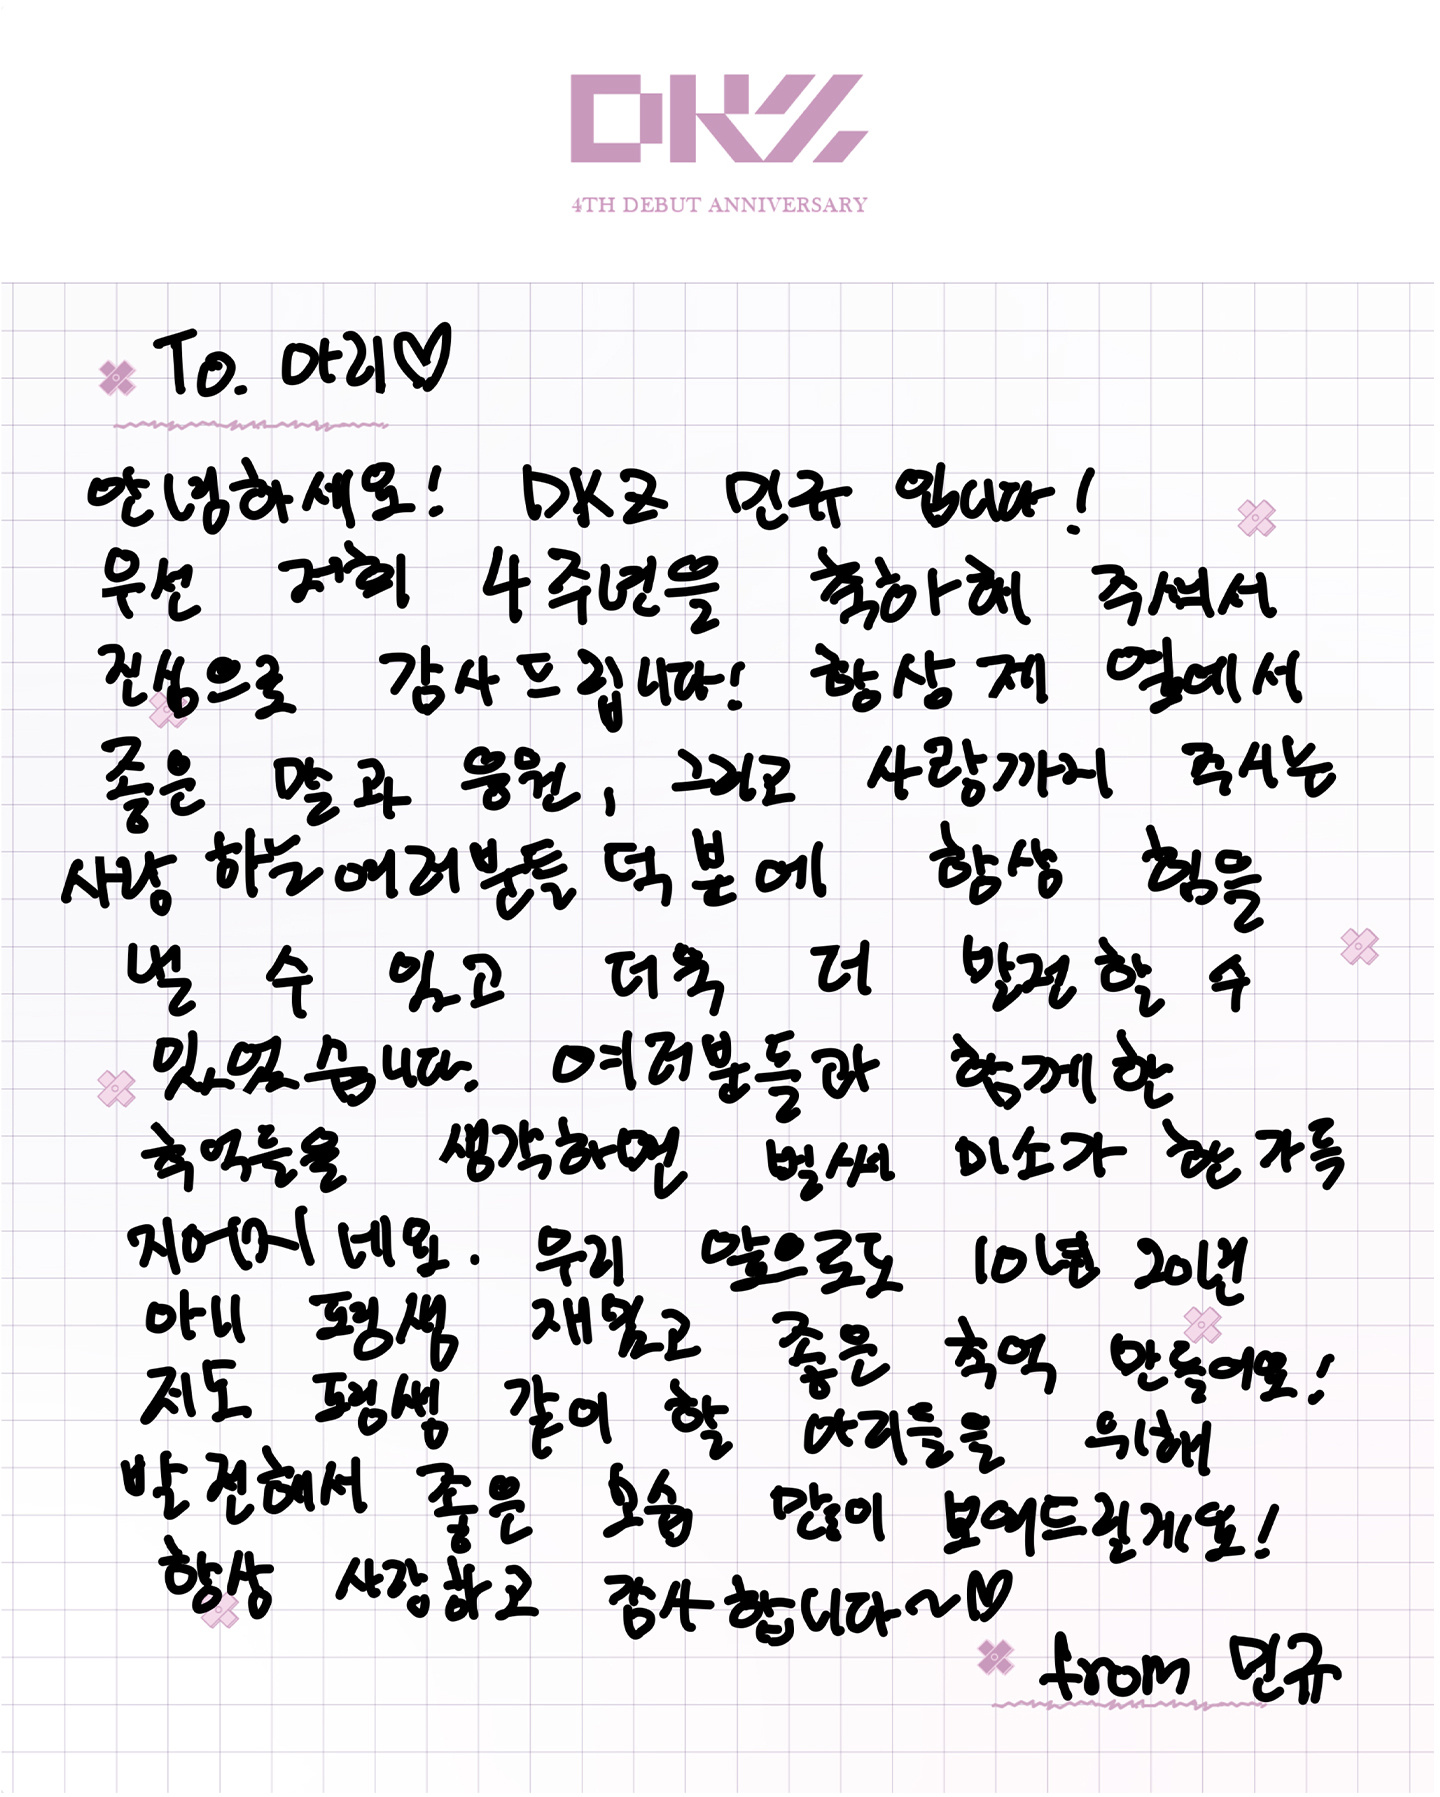 DKZ
4TH DEBUT ANNIVERSARY
To. 아리♡
안녕하세요! DKZ 민규 입니다!
우선 저희 4주년을 축하해 주셔서
진심으로 감사드립니다! 항상 제 옆에서
좋은 말과 응원, 그리고 사랑까지 주시는
사랑하는 여러분들 덕분에 항상 힘을
낼 수 있고 더욱 더 발전할 수
있었습니다. 여러분들과 함께한
추억들을 생각하면 벌써 미소가 한가득
지어지네요. 우리 앞으로도 10년 20년
아니 평생 재밌고 좋은 추억 만들어요!
저도 평생 같이 할 아리들을 위해
발전해서 좋은 모습 많이 보여드릴게요!
항상 사랑하고 감사합니다~♡
from 민규